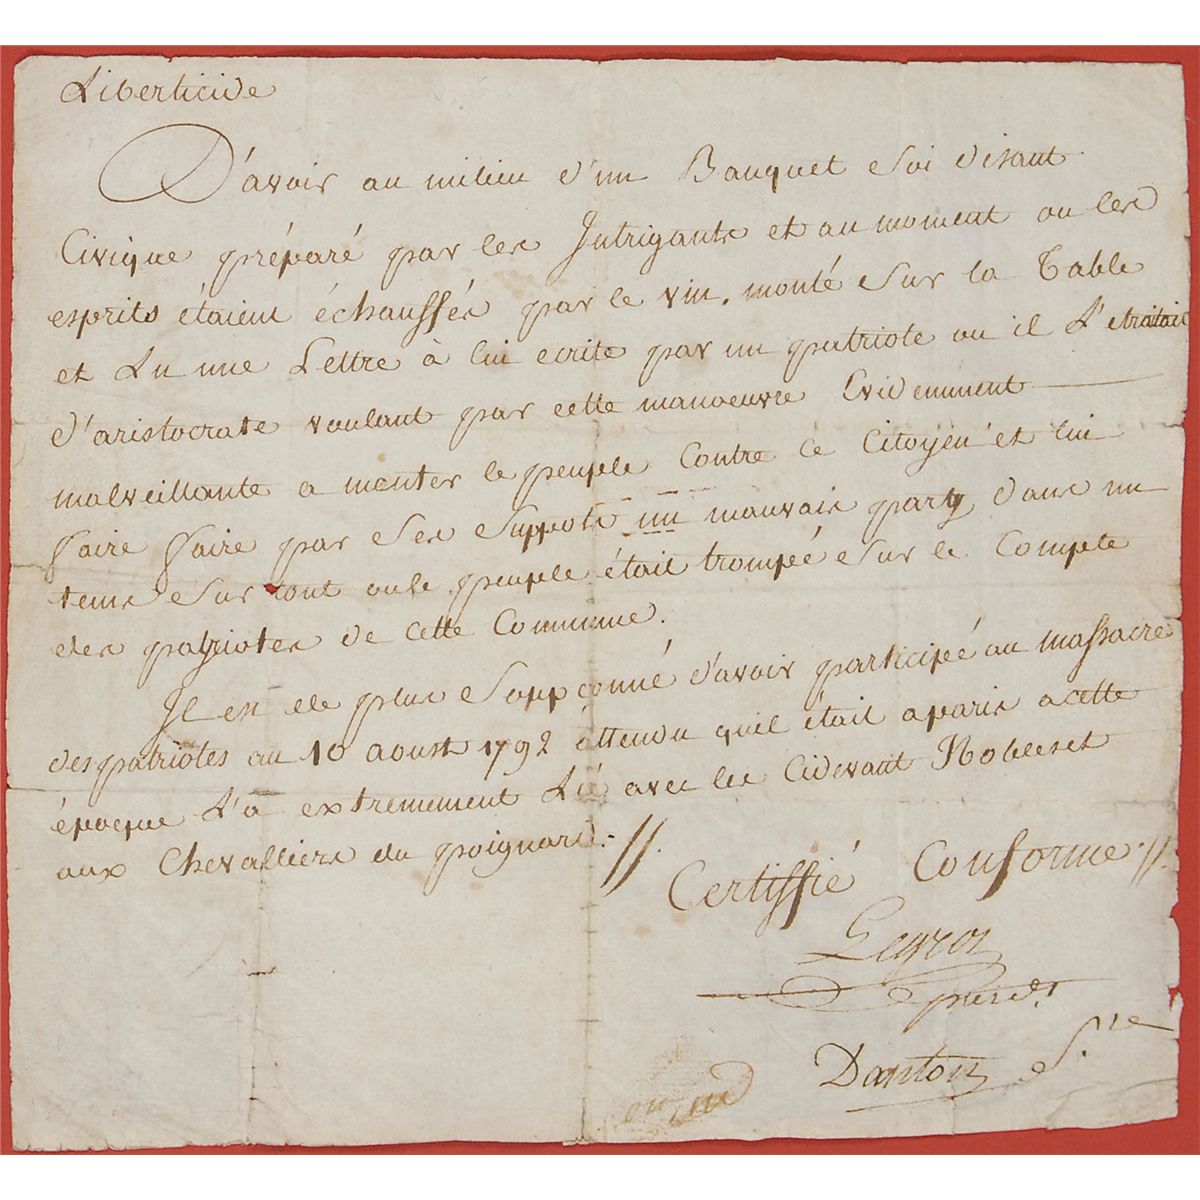 Liberticide
D'avoir au milieu d'un Banquet Soi disant
Civique préparé par les Intrigants et au moment ou les
esprits étaient échauffés par le vin, monté Sur la Table
et Lu une Lettre à lui ecrite par un patriote ou il L'etraitait
d'aristocrate voulant par cette manoeuvre Evidemment
malveillante a monter le peuple Contre ce Citoyen et lui
faire faire par Ses Suppots un mauvais party dans un
tems Sur tout ou le peuple était trompée Sur le Compte
des patriotes de Cette Commune.
Il est de plus Soupçonné d'avoir participée au massacre
des patriotes au 10 aoust 1792 attendu quil était a paris a cette
époque L'a extremement Lié avec les Cidevant Nobles et
aux Chevalliers du poignard. //.
Certiffié Conforme //.
Legros
presdt
Danton S.re